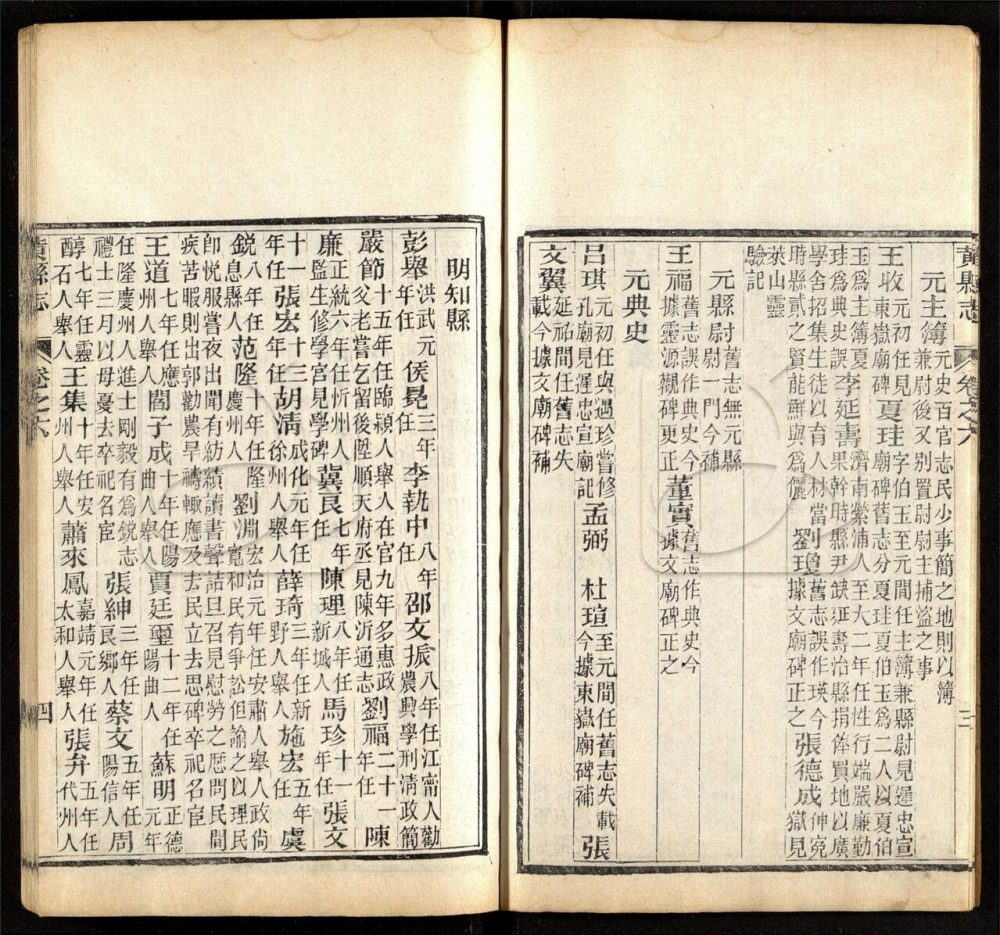 黃縣志 卷之六 三
元主簿 元史百官志民少事簡之地則以簿兼尉後又別置尉尉主捕盜之事
王收 元初任見東嶽廟碑 夏珪 字伯玉至元間任主簿兼縣尉見遲忠宣廟碑舊志分夏珪夏伯玉爲二人以夏伯
玉爲主簿夏珪爲典史誤 李延壽 濟南縈浦人至大二年任性行端嚴廉勤果幹時縣尹缺延壽治縣捐俸買地以廣
學舍招集生徒以育人材當時縣貳之賢能鮮與爲儷 劉瓊 舊志誤作瑛今據文廟碑正之 張德成 伸寃獄見
萊山靈驗記
元縣尉 舊志無元縣尉一門今補
王福 舊志誤作典史今據靈源觀碑更正 董實 舊志作典史今據文廟碑正之
元典史
呂琪 元初任與遇珍嘗修孔廟見遲忠宣廟記 孟弼 杜瑄 至元間任舊志失載今據東嶽廟碑補 張
文翼 延祐間任舊志失載今據文廟碑補
明知縣
彭舉 洪武元年任 侯晃 三年任 李執中 八年任 邵文振 八年任江甯人勸農興學刑清政簡
嚴節 十五年任臨潁人舉人在官九年多惠政父老嘗乞留後陞順天府丞見陳沂通志 劉福 二十一年任 陳
廉 正統六年任忻州人監生修學宮見學碑 冀良 七年任 陳理 八年任新城人 馬珍 十一年任 張文
十一年任 張宏 十三年任 胡清 成化元年任徐州人舉人 薛琦 三年任新野人舉人 施宏 五年任 虞
銳 八年任息縣人 范隆 十年任隆慶州人 劉淵 宏治元年任安肅人舉人政尚寬和民有爭訟但諭之以理民
卽悅服嘗夜出聞有紡績讀書聲詰旦召見慰勞之歷問民間疾苦暇則出郭勸農旱禱輒應及去民立去思碑卒祀名宦
王道 七年任應州人舉人 閻子成 十年任陽曲人舉人 賈廷璽 十二年任陽曲人 蘇明 正德元年
任隆慶州人進士剛毅有爲銳志禮士三月以母憂去卒祀名宦 張紳 三年任良鄉人 蔡文 五年任陽信人 周
醇 七年任靈石人舉人 王集 十年任安州人舉人 蕭來鳳 嘉靖元年任太和人舉人 張弁 五年任代州人
黃縣志 卷之六 四